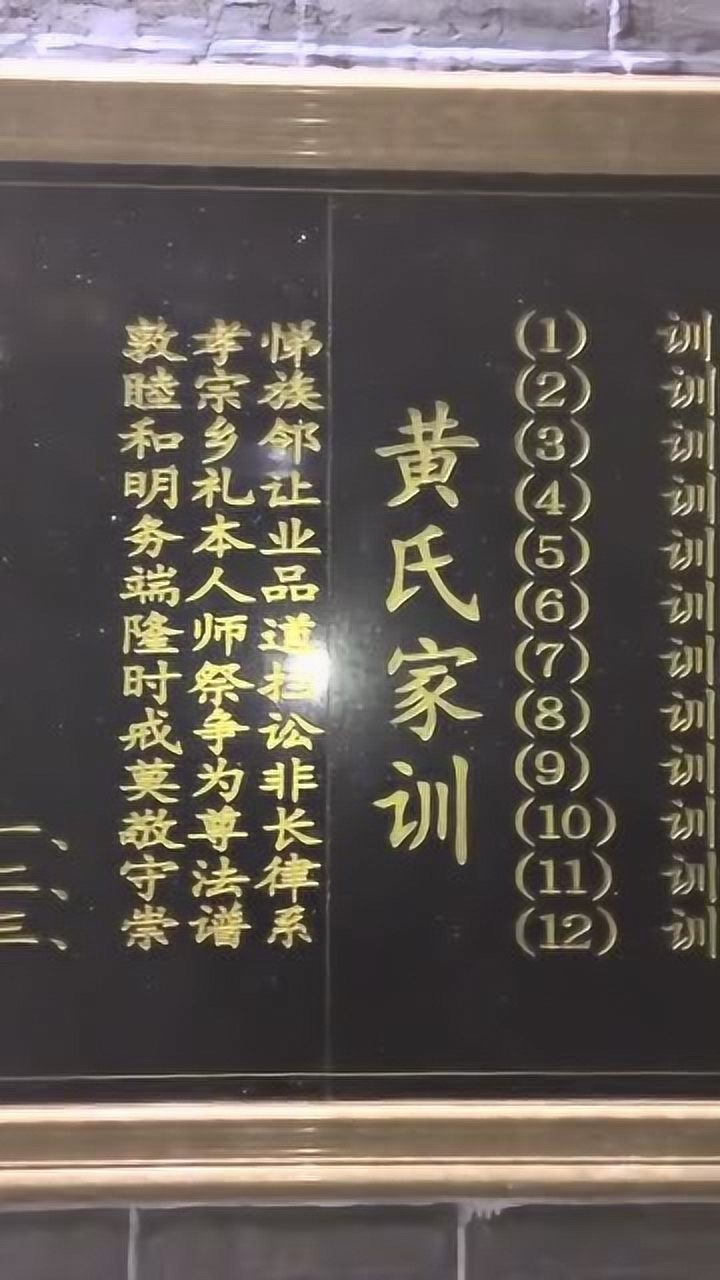 敦孝悌
睦宗族
和乡邻
明礼让
务本业
端人品
隆师道
时祭扫
戒争讼
莫为非
敬尊长
守法律
崇谱系
一、
二、
三、
黄氏家训
(1) 训
(2) 训
(3) 训
(4) 训
(5) 训
(6) 训
(7) 训
(8) 训
(9) 训
(10) 训
(11) 训
(12) 训